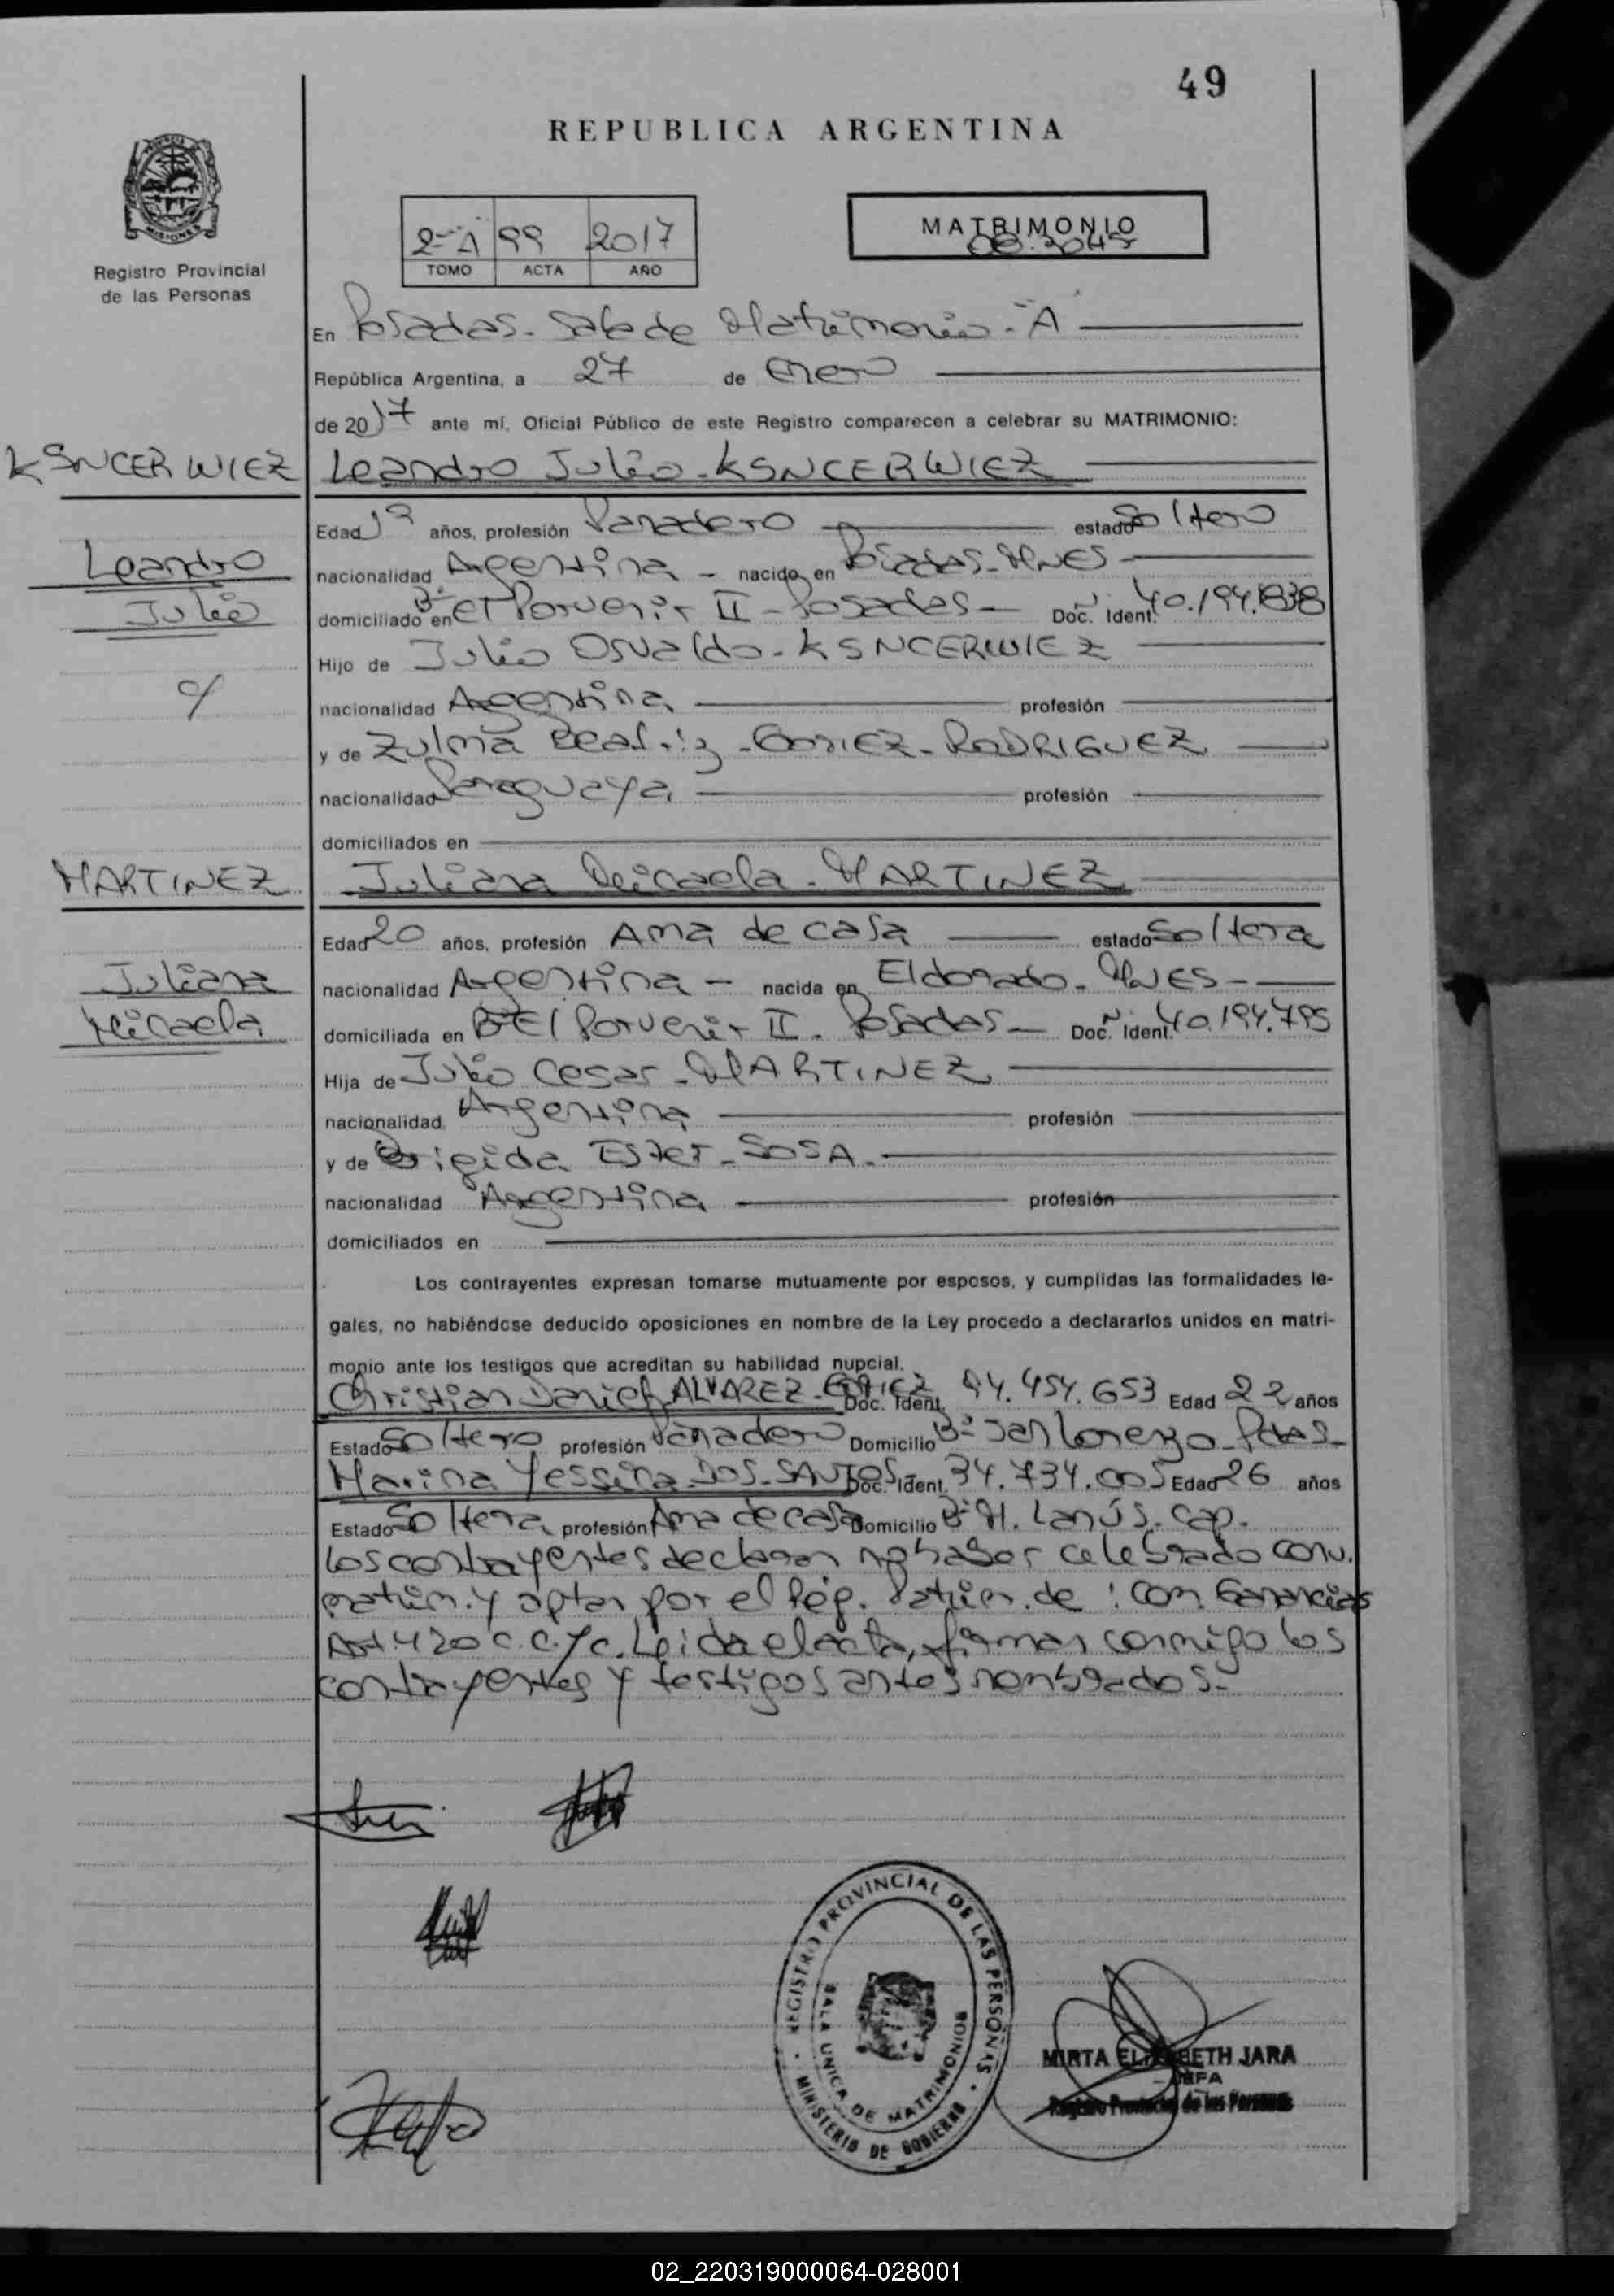 49
REPUBLICA ARGENTINA
Registro Provincial
de las Personas
2-"A" 99 2017
TOMO ACTA AÑO
MATRIMONIO
En Posadas- Sala de Matrimonio- "A"
República Argentina, a 27 de Enero
de 2017 ante mí, Oficial Público de este Registro comparecen a celebrar su MATRIMONIO:
KSNCERWIEZ
Leandro Julio- KSNCERWIEZ
Edad 19 años, profesión Panadero estado Soltero
Leandro
Julio
c/
nacionalidad Argentina - nacido en Posadas- MNES-
domiciliado en Bº El Porvenir II- Posadas- Doc. Ident. 40.194.838
Hijo de Julio Osvaldo- KSNCERWIEZ
nacionalidad Argentina profesión
y de Zulma Beatriz- GOMEZ- RODRIGUEZ
nacionalidad Paraguaya profesión
domiciliados en
MARTINEZ
Juliana Micaela- MARTINEZ
Edad 20 años, profesión Ama de casa estado Soltera
Juliana
Micaela
nacionalidad Argentina - nacida en Eldorado- MNES-
domiciliada en Bº El Porvenir II- Posadas- Doc. Ident. 40.194.795
Hija de Julio Cesar- MARTINEZ
nacionalidad Argentina profesión
y de Brigida Ester- SOSA.-
nacionalidad Argentina profesión
domiciliados en
Los contrayentes expresan tomarse mutuamente por esposos, y cumplidas las formalidades le-
gales, no habiéndose deducido oposiciones en nombre de la Ley procedo a declararlos unidos en matri-
monio ante los testigos que acreditan su habilidad nupcial.
Christian Daniel ALVAREZ- GOMEZ Doc. Ident. 94.454.653 Edad 22 años
Estado Soltero profesión Panadero Domicilio Bº San Lorenzo- Pdas-
Marina Yessica DOS- SANTOS- Doc. Ident. 34.734.005 Edad 26 años
Estado Soltera profesión Ama de casa Domicilio Bº M. Lanús. Cap.
Los contrayentes declaran no haber celebrado conv.
matrim. y optan por el Rég. Patrim. de : Com. Ganancias
Art 420 C.C.y C. Leida el acta, firman conmigo los
contrayentes y testigos antes nombrados.-
REGISTRO PROVINCIAL DE LAS PERSONAS
SALA UNICA DE MATRIMONIOS
MINISTERIO DE GOBIERNO
MIRTA ELIZABETH JARA
JEFA
Registro Provincial de las Personas
02_220319000064-028001